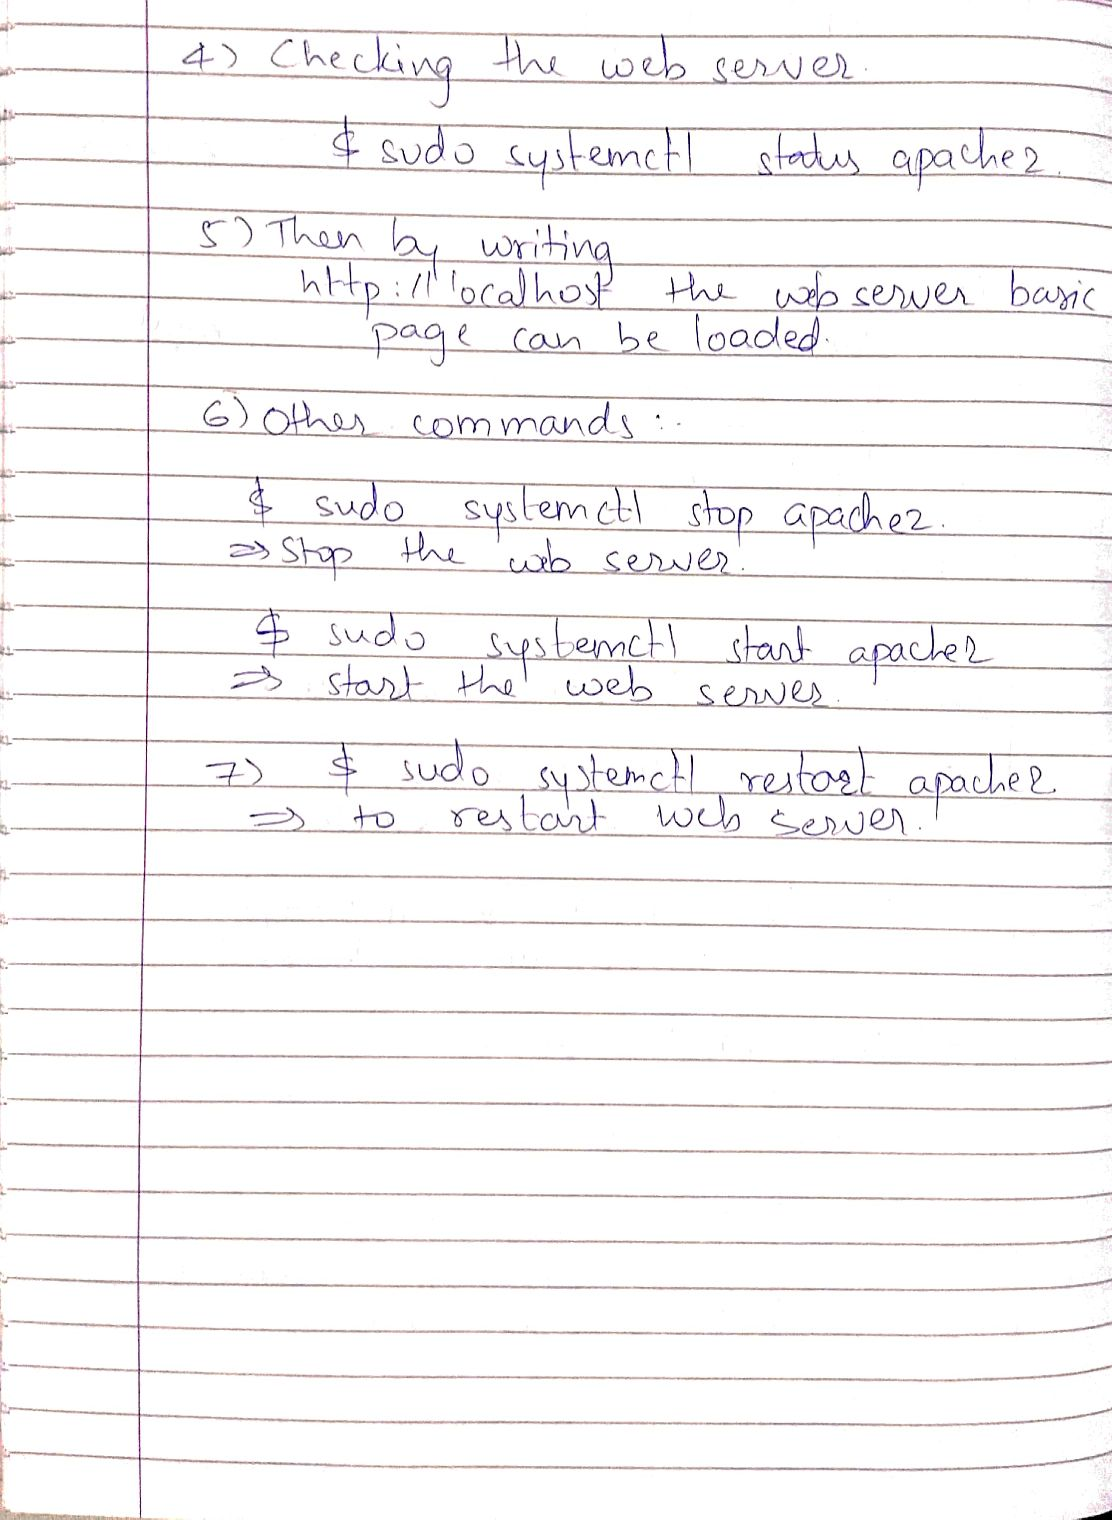 4) Checking the web server.
$ sudo systemctl status apache2.
5) Then by writing
http://localhost the web server basic
page can be loaded.
6) Other commands :-
$ sudo systemctl stop apache2.
⇒ Stop the web server.
$ sudo systemctl start apache2
⇒ start the web server.
7) $ sudo systemctl restart apache2
⇒ to restart web server.